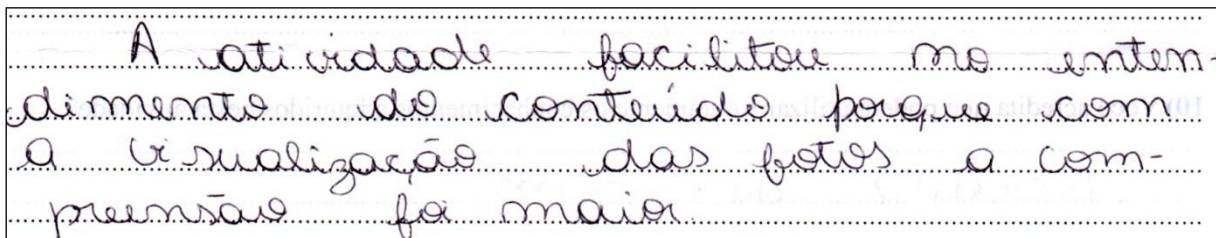 A atividade facilitou no enten-
dimento do conteúdo porque com
a visualização das fotos a com-
preensão foi maior.